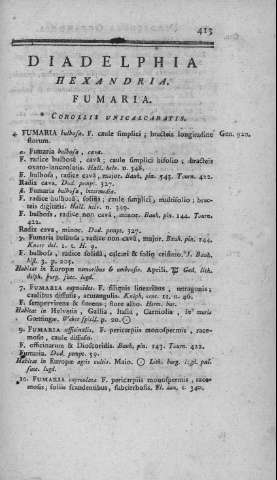 413
DIADELPHIA
HEXANDRIA.
FUMARIA.
COROLLIS UNICALCARATIS.
FUMARIA bulbosa. F. caule simplici; bracteis longitudine Gen. 920.
florum.
α. Fumaria bulbosa, cava.
F. radice bulbosâ, cavâ; caule simplici bifolio; bracteis
ovato-lanceolatis. Hall. helv. n. 348.
F. bulbosa, radice cavâ, major. Bauh. pin. 143. Tourn. 422.
Radix cava. Dod. pempt. 327.
β. Fumaria bulbosa, intermedia.
F. radice bulbosâ, solidâ; caule simplici, multifolio; brac-
teis digitatis. Hall. helv. n. 349.
F. bulbosa, radice non cavâ, minor. Bauh. pin. 144. Tourn.
422.
Radix cava, minor. Dod. pempt. 327.
γ. Fumaria bulbosa, radice non cavâ, major. Bauh. pin. 144.
H. 9.
F. bulbosa, radice solidâ, calcari & folio cristato. J. Bauh.
hist. 3. p. 205.
Habitat in Europæ nemoribus & umbrosis. Aprili. Ged. lith.
delph. burg. succ. lugd.
7. FUMARIA capnoides. F. siliquis linearibus, tetragonis;
caulibus diffusis, acutangulis. Kniph. cent. 12. n. 46.
F. sempervirens & florens; flore albo. Herm. bat.
Habitat in Helvetia, Gallia, Italia, Carniolia, in muris
Goettingæ. Weber spicil. p. 20.
9. FUMARIA officinalis. F. pericarpiis monospermis, race-
mosis, caule diffuso.
F. officinarum & Dioscoridis. Bauh. pin. 143. Tourn. 422.
Fumaria. Dod. pempt. 59.
Habitat in Europæ agris cultis. Maio. Lith. burg. lugd. pal.
succ. lugd.
10. FUMARIA capreolata. F. pericarpiis monospermis, race-
mosis; foliis scandentibus, subcirrhosis. Fl. dan. t. 340.